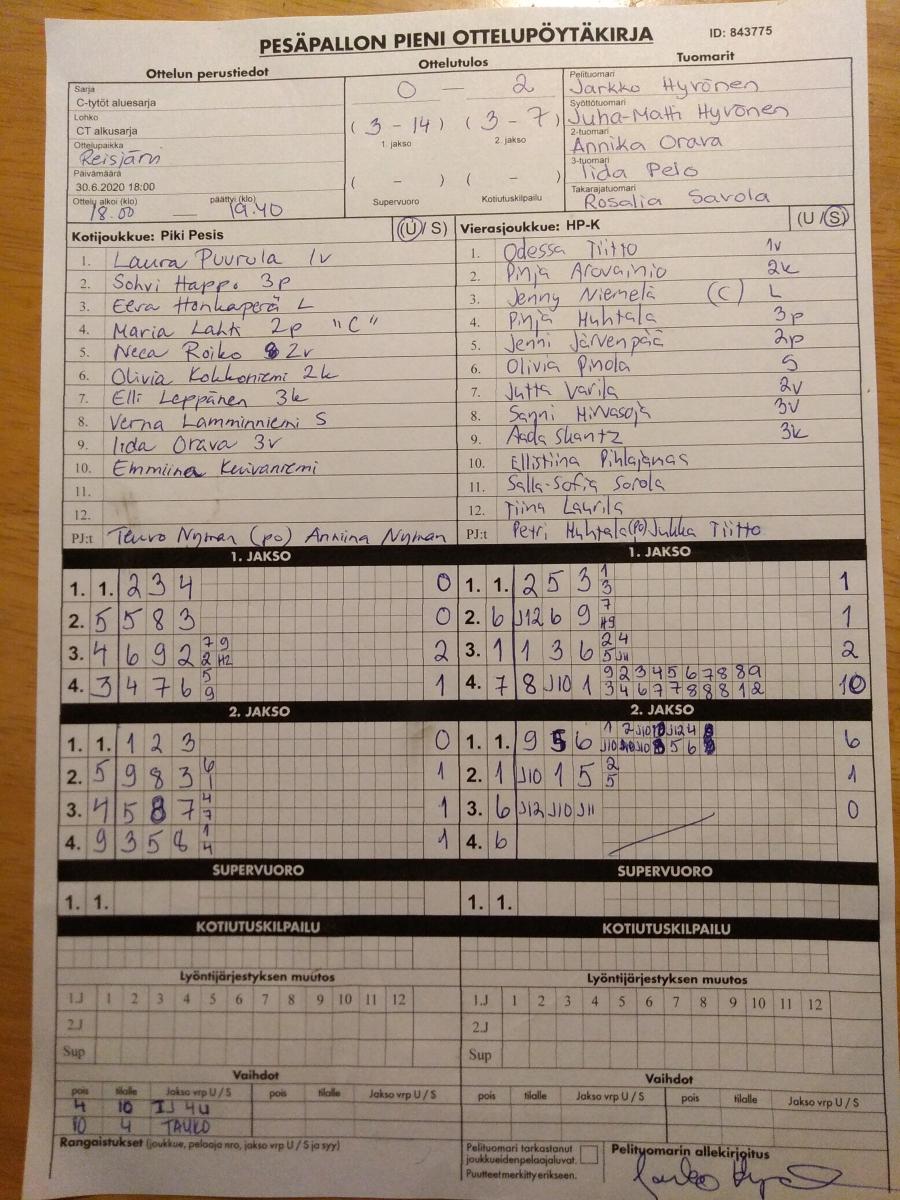 PESÄPALLON PIENI OTTELUPÖYTÄKIRJA
ID: 843775
Ottelun perustiedot
Sarja
C-tytöt aluesarja
Lohko
CT alkusarja
Ottelupaikka
Reisjärvi
Päivämäärä
30.6.2020 18:00
Ottelu alkoi (klo) päättyi (klo)
18.00 — 19.40
Ottelutulos
0 — 2
( 3 - 14 ) ( 3 - 7 )
1. jakso 2. jakso
( - ) ( - )
Supervuoro Kotiutuskilpailu
Tuomarit
Pelituomari
Jarkko Hyvönen
Syöttötuomari
Juha-Matti Hyvönen
2-tuomari
Annika Orava
3-tuomari
Iida Pelo
Takarajatuomari
Rosalia Savola
Kotijoukkue: Piki Pesis (U / S)
1. Laura Puurula 1v
2. Sohvi Happo 3p
3. Eeva Honkaperä L
4. Maria Lahti 2p "C"
5. Neea Roiko 2v
6. Olivia Kokkoniemi 2k
7. Elli Leppänen 3k
8. Verna Lamminniemi S
9. Iida Orava 3v
10. Emmiina
11.
12.
PJ:t Teuvo Nyman (po) Anniina Nyman
Vierasjoukkue: HP-K (U / S)
1. Odessa Tiitto 1v
2. Pinja Arovainio 2k
3. Jenny Niemelä (C) L
4. Pinja Huhtala 3p
5. Jenni Järvenpää 2p
6. Olivia Pinola S
7. Jutta Varila 2v
8. Sanni Hirvasoja 3v
9. Aada Skantz 3k
10. Ellistiina
11. Salla-Sofia Sorola
12. Tiina Laurila
PJ:t Petri Huhtala (po) Jukka Tiitto
1. JAKSO
1. 1. 2 3 4 0
2. 5 5 8 3 0
3. 4 6 9 2 7 9 2 H2 2
4. 3 4 7 6 5 9 1
1. JAKSO
1. 1. 2 5 3 1 3 1
2. 6 J12 6 9 7 H9 1
3. 1 1 3 6 2 4 5 J11 2
4. 7 8 J10 1 9 2 3 4 5 6 7 8 8 9 10
3 4 6 7 7 8 8 8 1 2
2. JAKSO
1. 1. 1 2 3 0
2. 5 9 8 3 6 1 1
3. 4 5 8 7 4 7 1
4. 9 3 5 8 1 4 1
2. JAKSO
1. 1. 9 5 6 6
2. 1 J10 1 5 2 5 1
3. 6 J12 J10 J11 0
4. 6
SUPERVUORO
1. 1.
SUPERVUORO
1. 1.
KOTIUTUSKILPAILU
KOTIUTUSKILPAILU
Lyöntijärjestyksen muutos
1.J 1 2 3 4 5 6 7 8 9 10 11 12
2.J
Sup
Lyöntijärjestyksen muutos
1.J 1 2 3 4 5 6 7 8 9 10 11 12
2.J
Sup
Vaihdot
pois tilalle Jakso vrp U / S pois tilalle Jakso vrp U / S
4 10 IJ 4U
10 4 TAUKO
Vaihdot
pois tilalle Jakso vrp U / S pois tilalle Jakso vrp U / S
Rangaistukset (joukkue, pelaaja nro, jakso vrp U / S ja syy)
Pelituomari tarkastanut
joukkueiden pelaajaluvat.
Puutteet merkitty erikseen.
Pelituomarin allekirjoitus